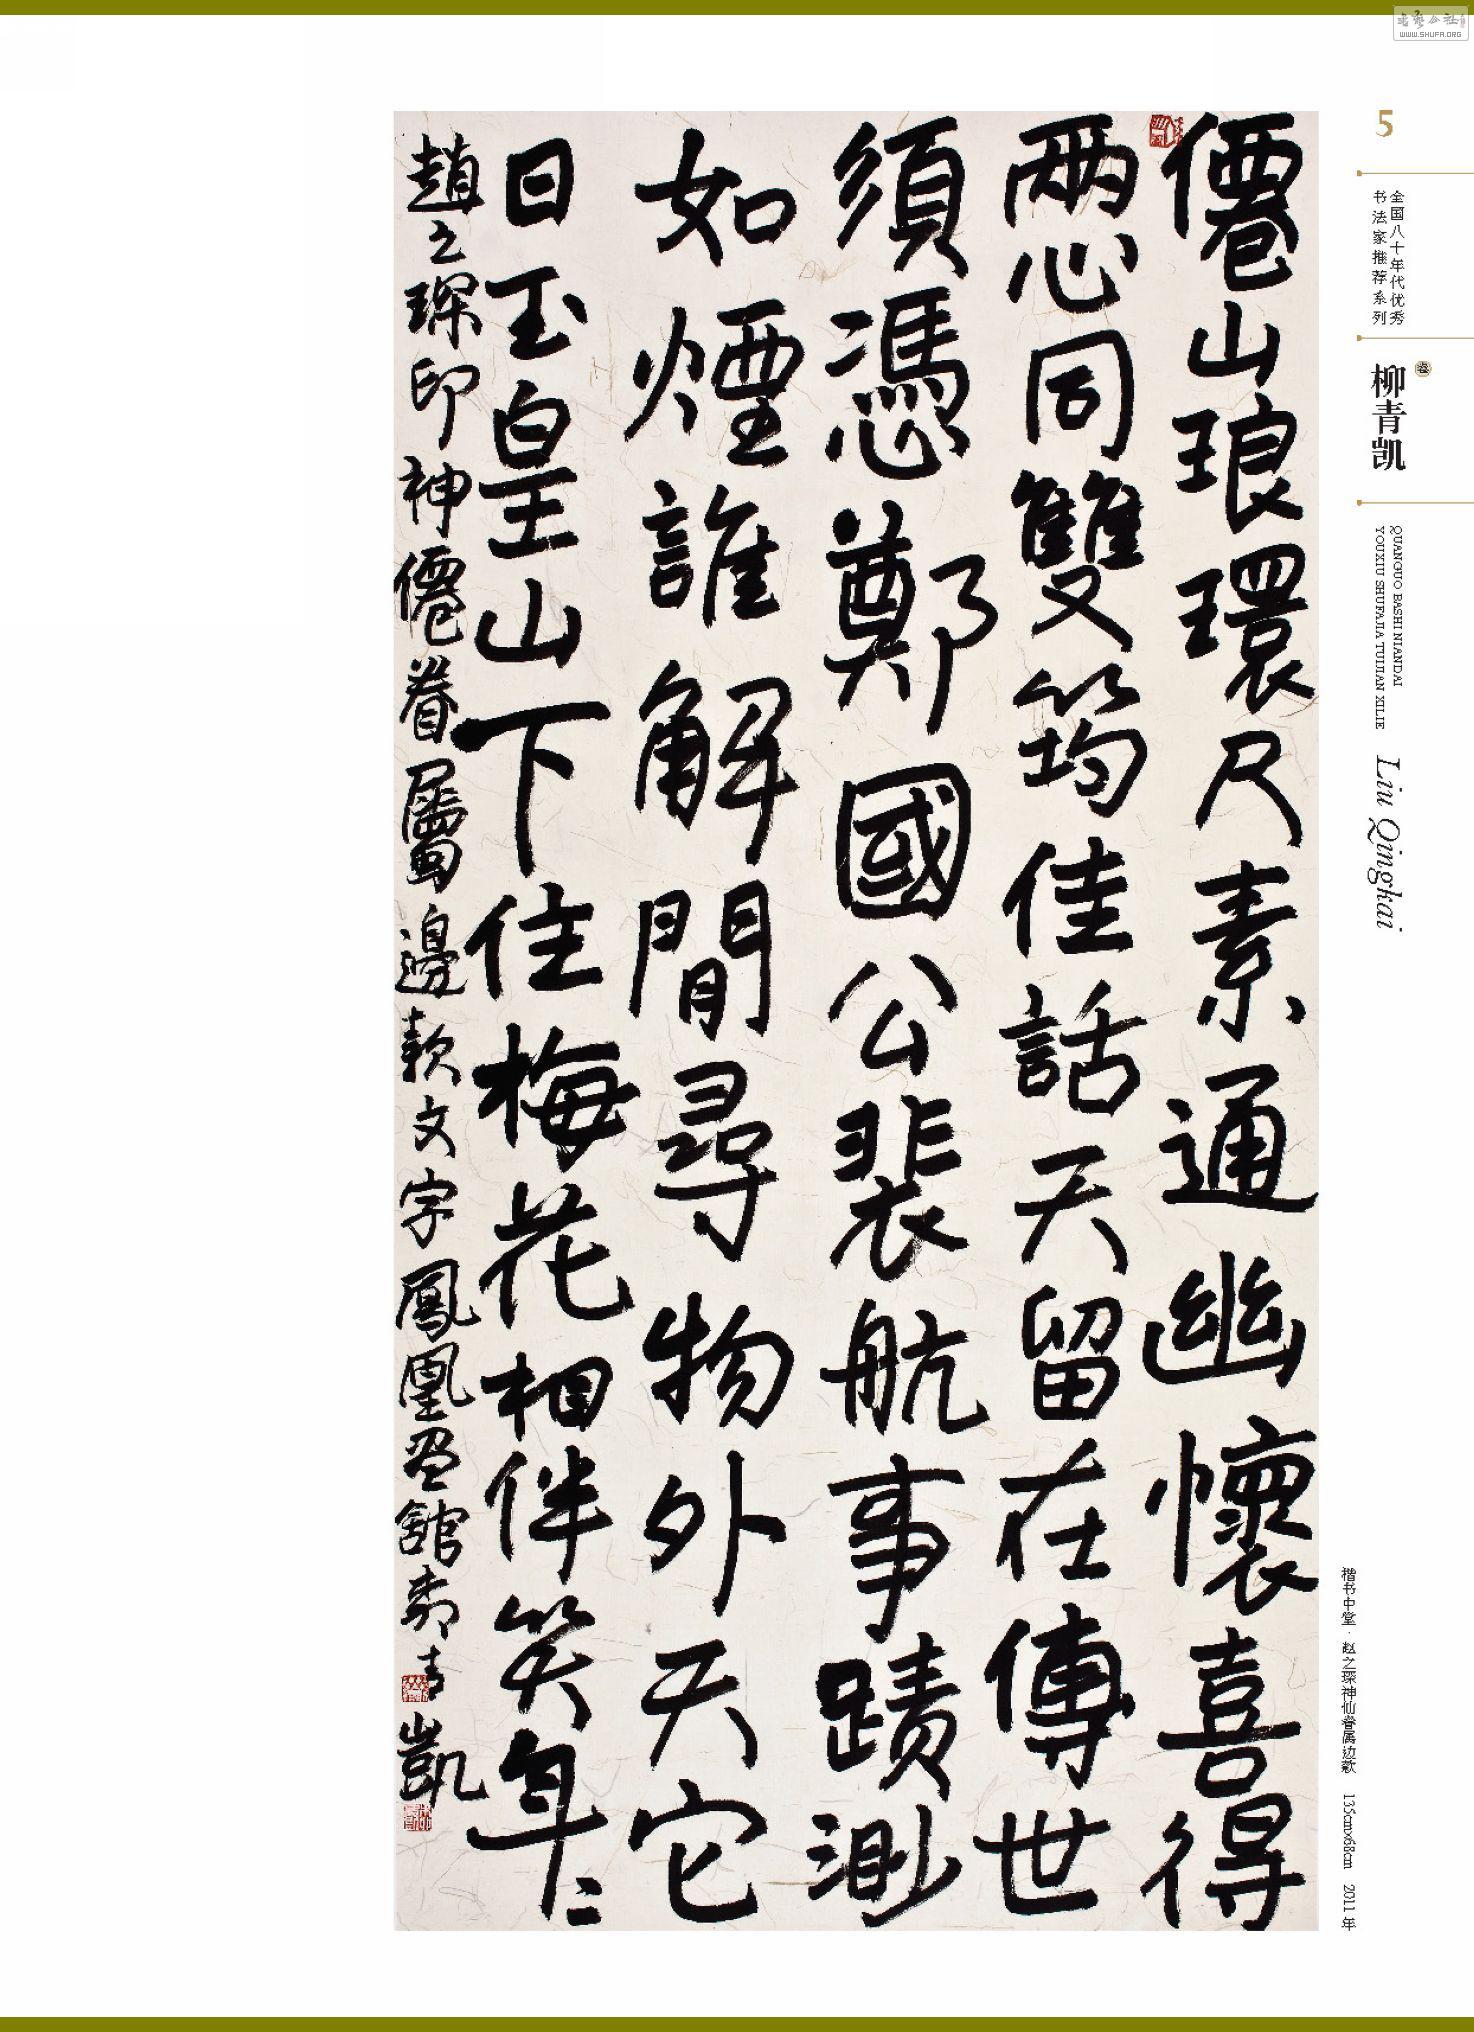 僊山琅環尺素通幽懷喜得
兩心同雙筠佳話天留在傳世
須馮鄭國公裴航事蹟渺
如煙誰解閒尋物外天它
日玉皇山下住梅花相伴笑年二
趙之琛印神僊眷屬邊款文字鳳凰畫館柳青凱
5
全国八十年代优秀
书法家推荐系列
柳青凯
卷
QUANGUO BASHI NIANDAI
YOUXIU SHUFAJIA TUIJIAN XILIE
Liu Qingkai
楷书中堂·赵之琛神仙眷属边款 135cm×68cm 2011年
书艺公社
WWW.SHUFA.ORG